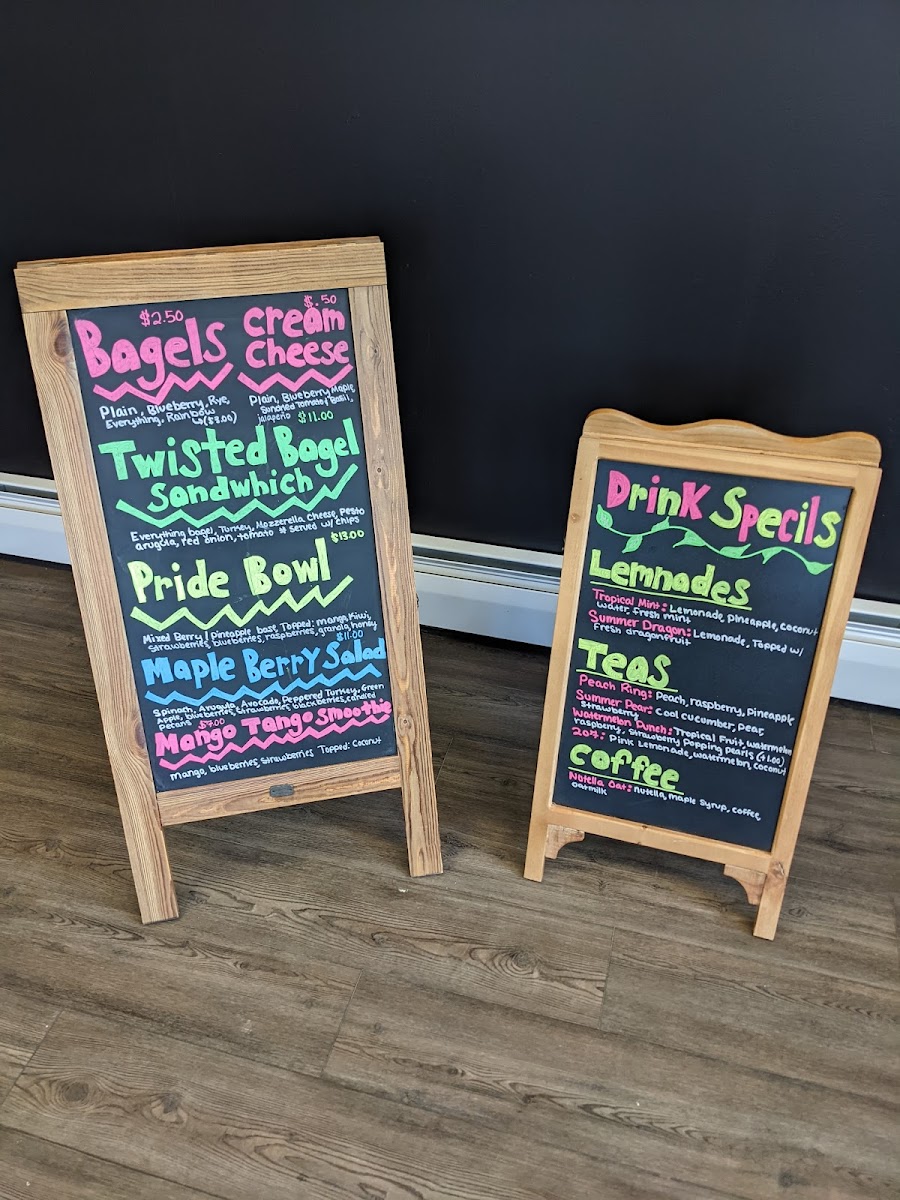 $2.50
Bagels
Plain, Blueberry, Rye,
Everything, Rainbow
↳($3.00)
$.50
Cream
Cheese
Plain, Blueberry, Maple,
Sundried Tomato & Basil,
jalapeño
$11.00
Twisted Bagel
Sandwhich
Everything bagel, Turkey, Mozzerella Cheese, Pesto
arugula, red onion, tomato * served w/ chips
$13.00
Pride Bowl
Mixed Berry / pineapple base, Topped: mango, Kiwi,
strawberries, blueberries, raspberries, granola, honey
$11.00
Maple Berry Salad
Spinach, Arugula, Avocado, Peppered Turkey, Green
apple, blueberries, strawberries, blackberries, candied
pecans
$9.00
Mango Tango Smoothie
Mango, blueberries, strawberries Topped: Coconut
Drink Specils
Lemnades
Tropical Mint: Lemonade, pineapple, coconut
water, fresh mint
Summer Dragon: Lemonade, Topped w/
fresh dragonfruit
Teas
Peach Ring: Peach, raspberry, pineapple
Summer Pear: Cool cucumber, pear,
Strawberry
Watermelon Punch: Tropical Fruit, watermelon
raspberry, strawberry popping pearls (+1.00)
207: Pink Lemonade, watermelon, coconut
Coffee
Nutella Oat: nutella, maple syrup, coffee,
oatmilk